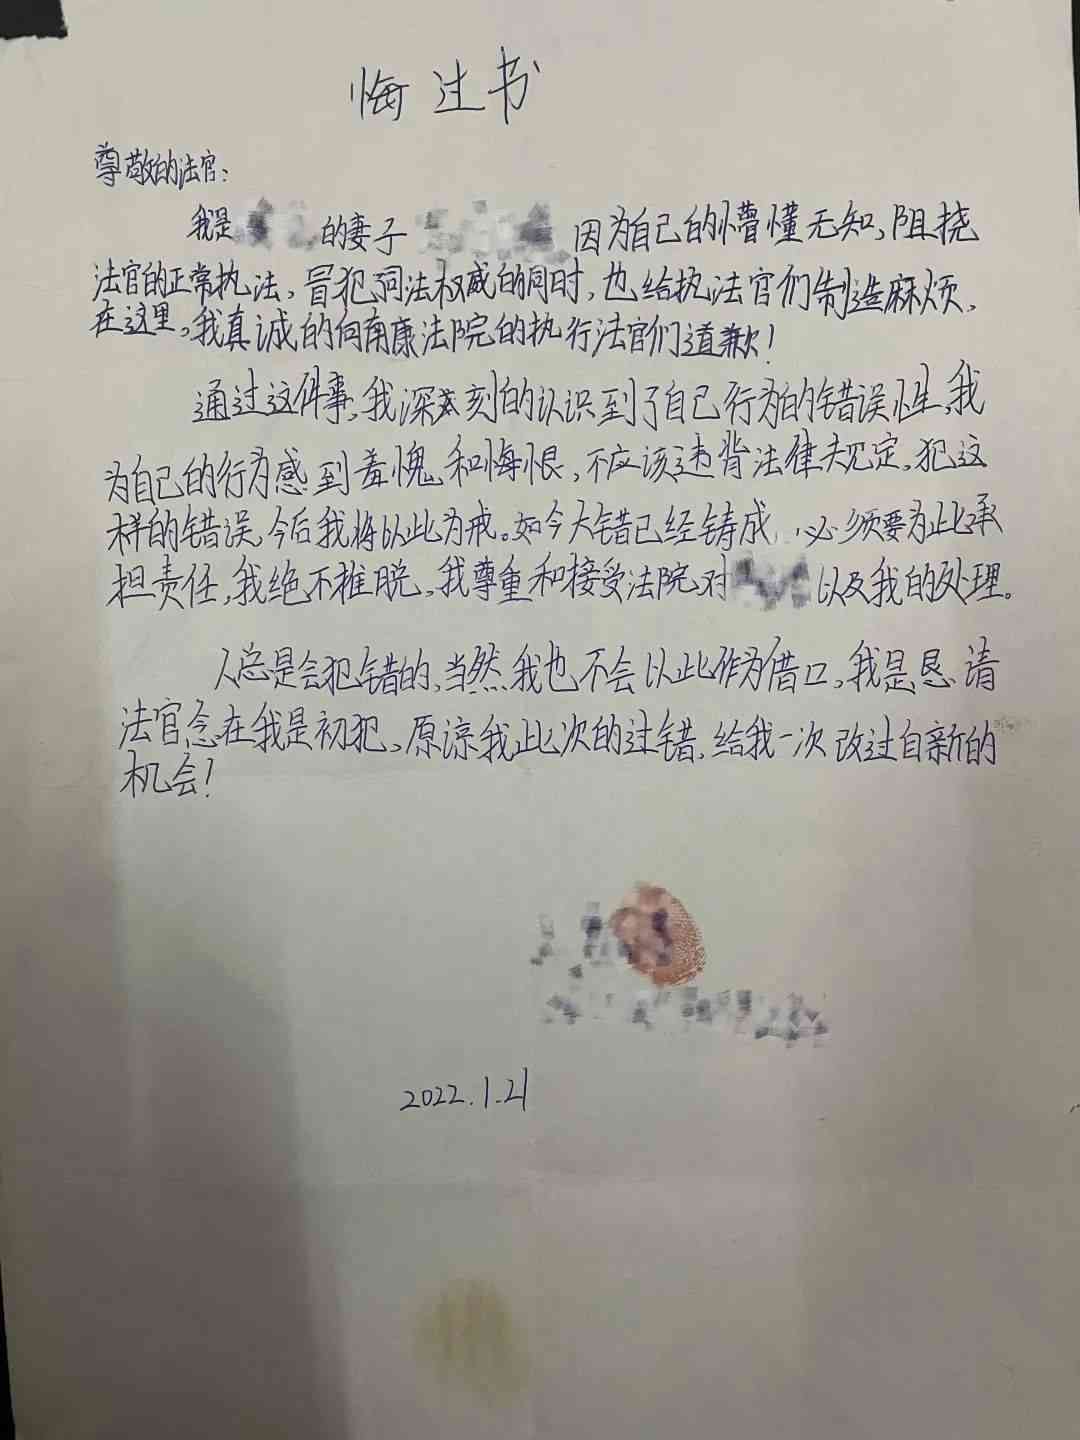 悔过书
尊敬的法官：
我是 的妻子 因为自己的懵懂无知，阻挠
法官的正常执法，冒犯司法权威的同时，也给执法官们制造麻烦，
在这里，我真诚的向南康法院的执行法官们道歉！
通过这件事，我深刻的认识到了自己行为的错误性，我
为自己的行为感到羞愧和悔恨，不应该违背法律规定，犯这
样的错误，今后我将以此为戒。如今大错已经铸成，必须要为此承
担责任，我绝不推脱，我尊重和接受法院对 以及我的处理。
人总是会犯错的，当然我也不会以此作为借口，我是恳请
法官念在我是初犯，原谅我此次的过错，给我一次改过自新的
机会！
2022.1.21